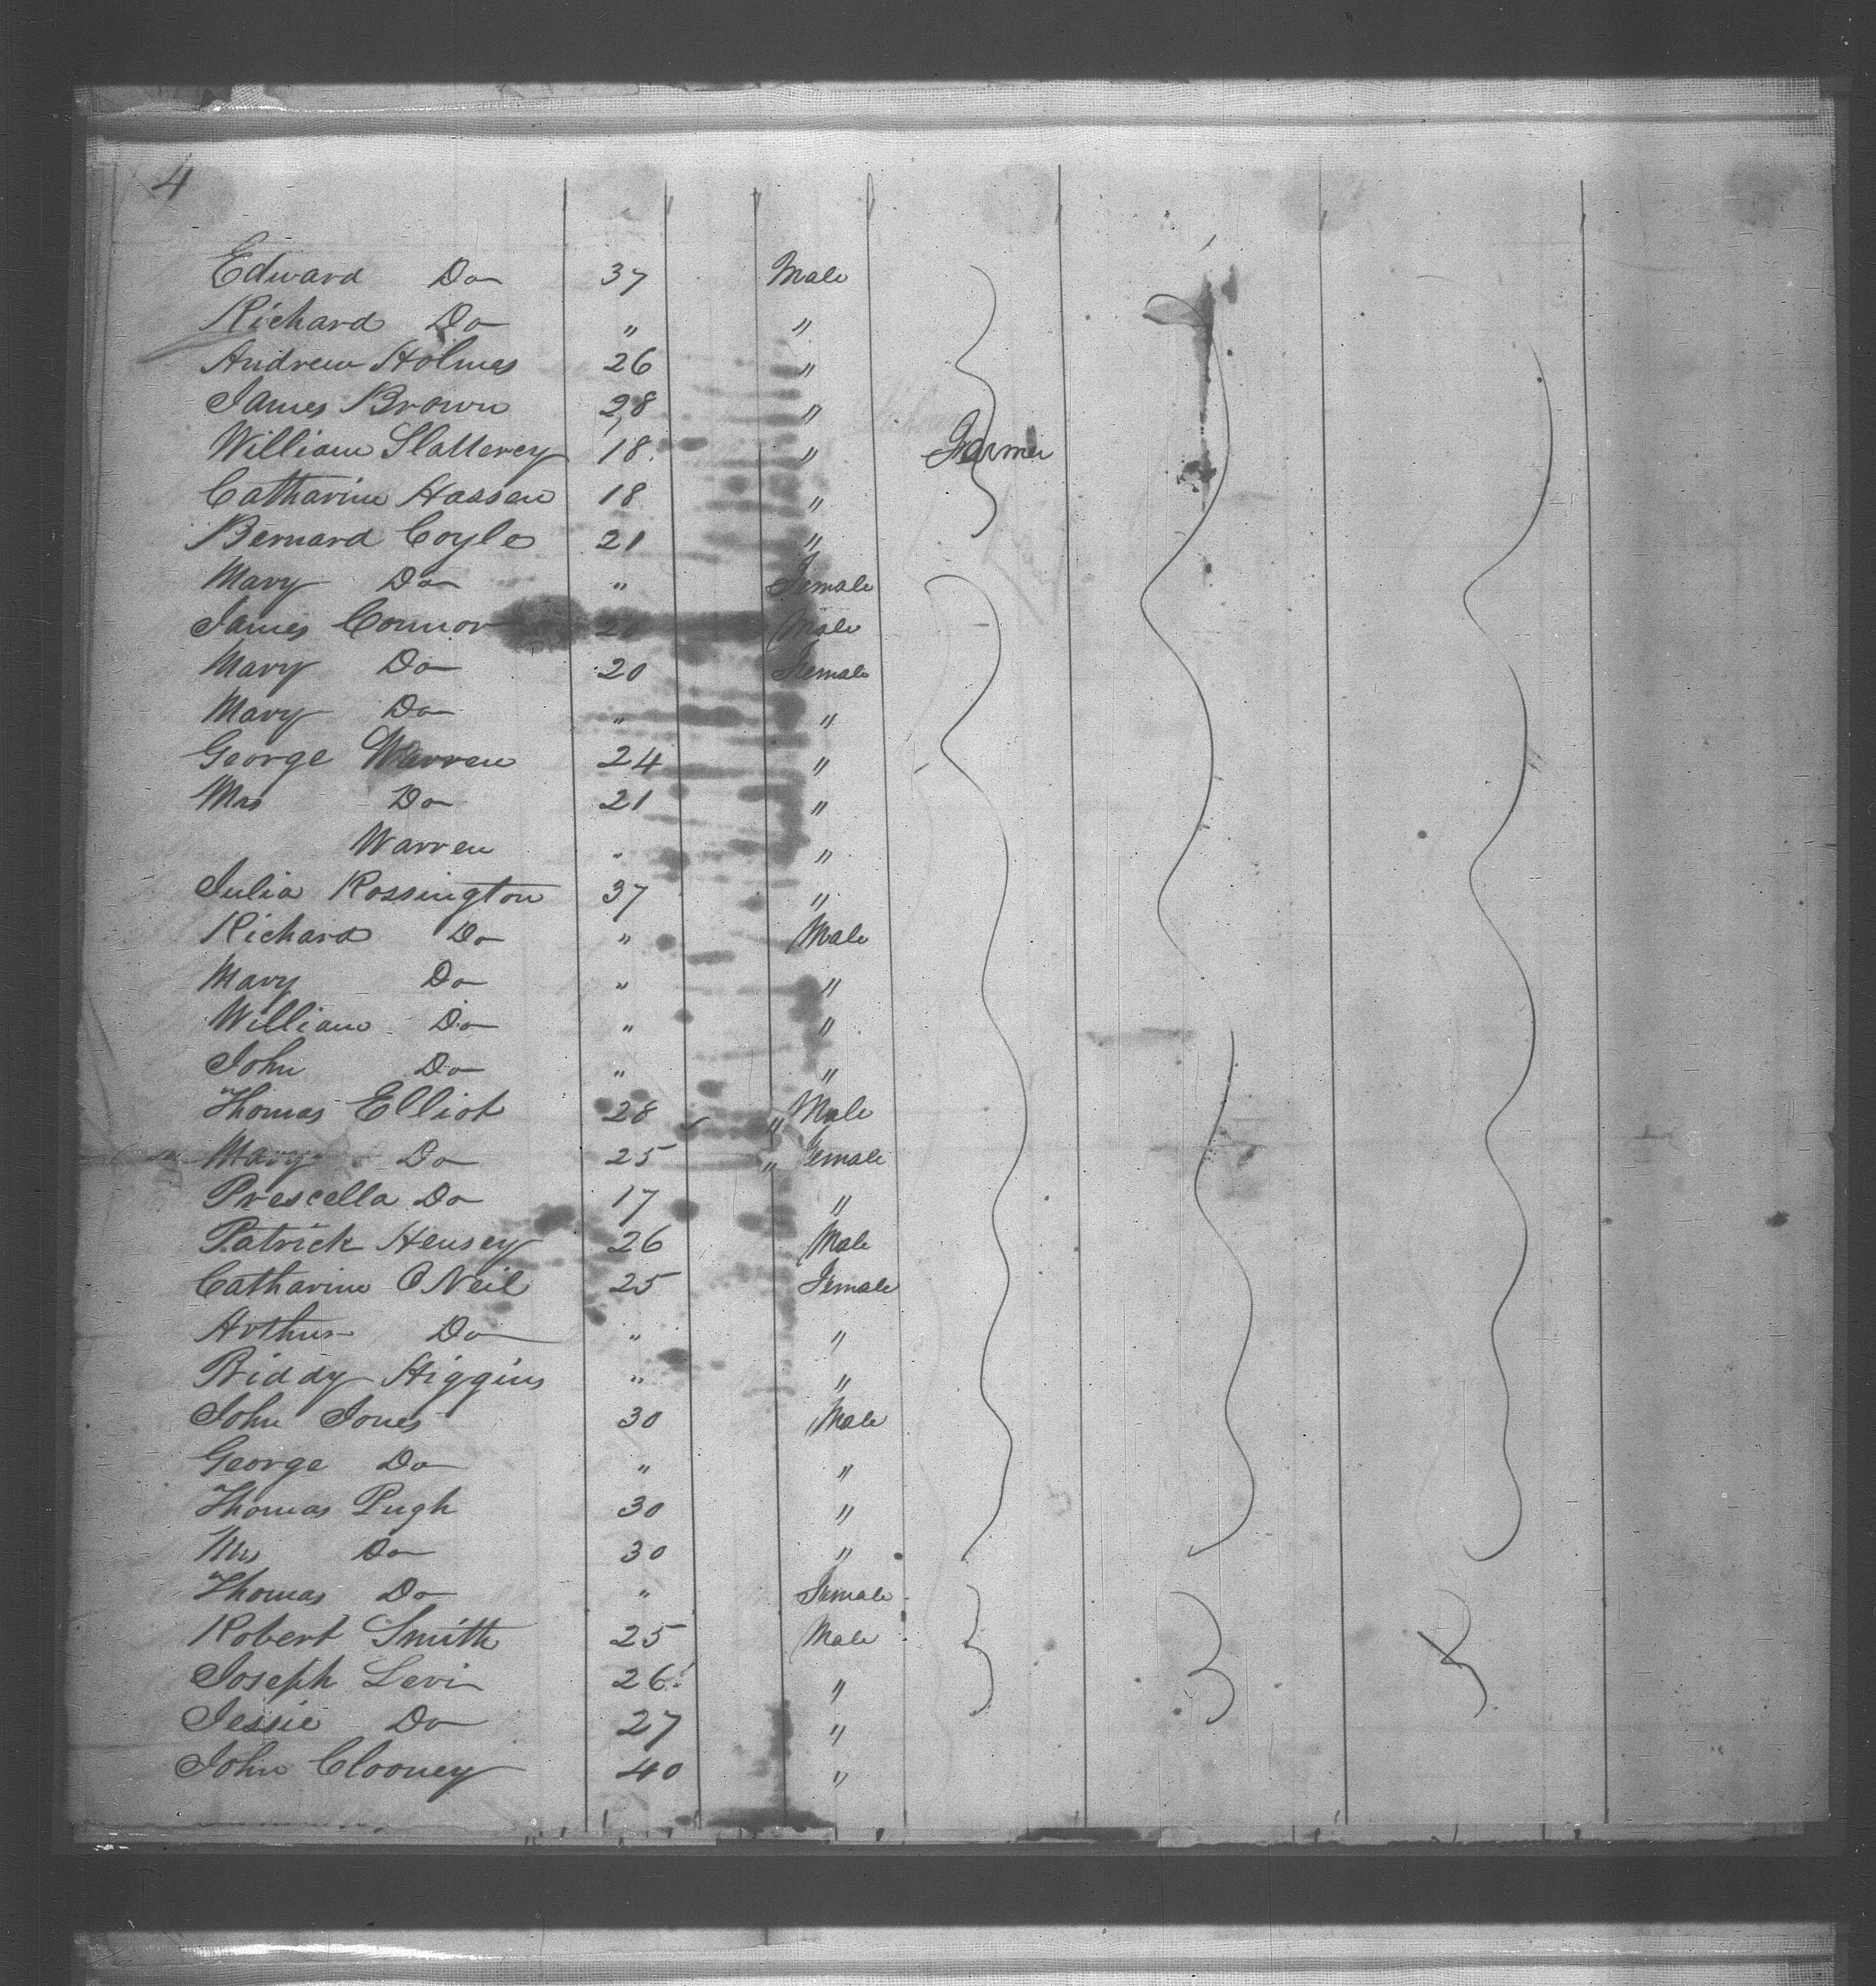 4
Edward Do 37 Male
Richard Do " "
Andrew Holmes 26 "
James Brown 28 "
William Slatterey 18. " Farmer
Catharine Hassen 18 "
Bernard Coyle 21 "
Mary Do " Female
James Connor 20 Male
Mary Do 20 Female
Mary Do " "
George Warren 24 "
Mrs Do 21 "
Warren " "
Julia Rossington 37 "
Richard Do " Male
Mary Do " "
William Do " "
John Do " "
Thomas Elliot 28 " Male
Mary Do 25 " Female
Prescella Do 17 "
Patrick Hensey 26 Male
Catharine O Neil 25 Female
Arthur Do " "
Biddy Higgins " "
John Jones 30 Male
George Do " "
Thomas Pugh 30 "
Mrs Do 30 "
Thomas Do " Female
Robert Smith 25 Male
Joseph Levi 26 "
Jessie Do 27 "
John Clooney 40 "